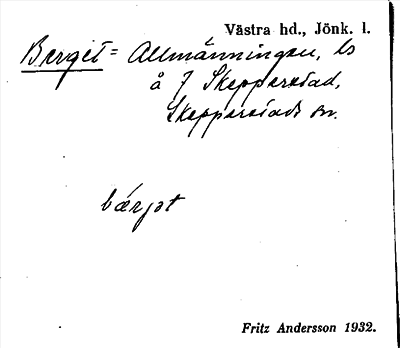 Västra hd., Jönk. l.
Berget = Allmänningen, ls
å 7 Skepparstad,
Skepparstads sn.
bærjət
Fritz Andersson 1932.